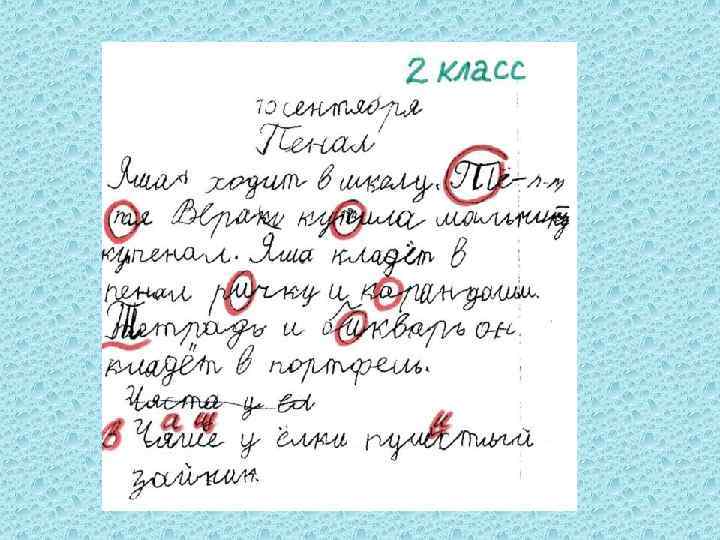 2 класс
10 сентября
Пенал
Яша ходит в школу. Тё-
тя Вера купила мальчи
ку пенал. Яша кладёт в
пенал ричку и карандаши.
Тетрадь и бйкварь он
кладёт в портфель.
Чяста у ёл
в а щ и
Чяше у ёлки пушистый
зайкин